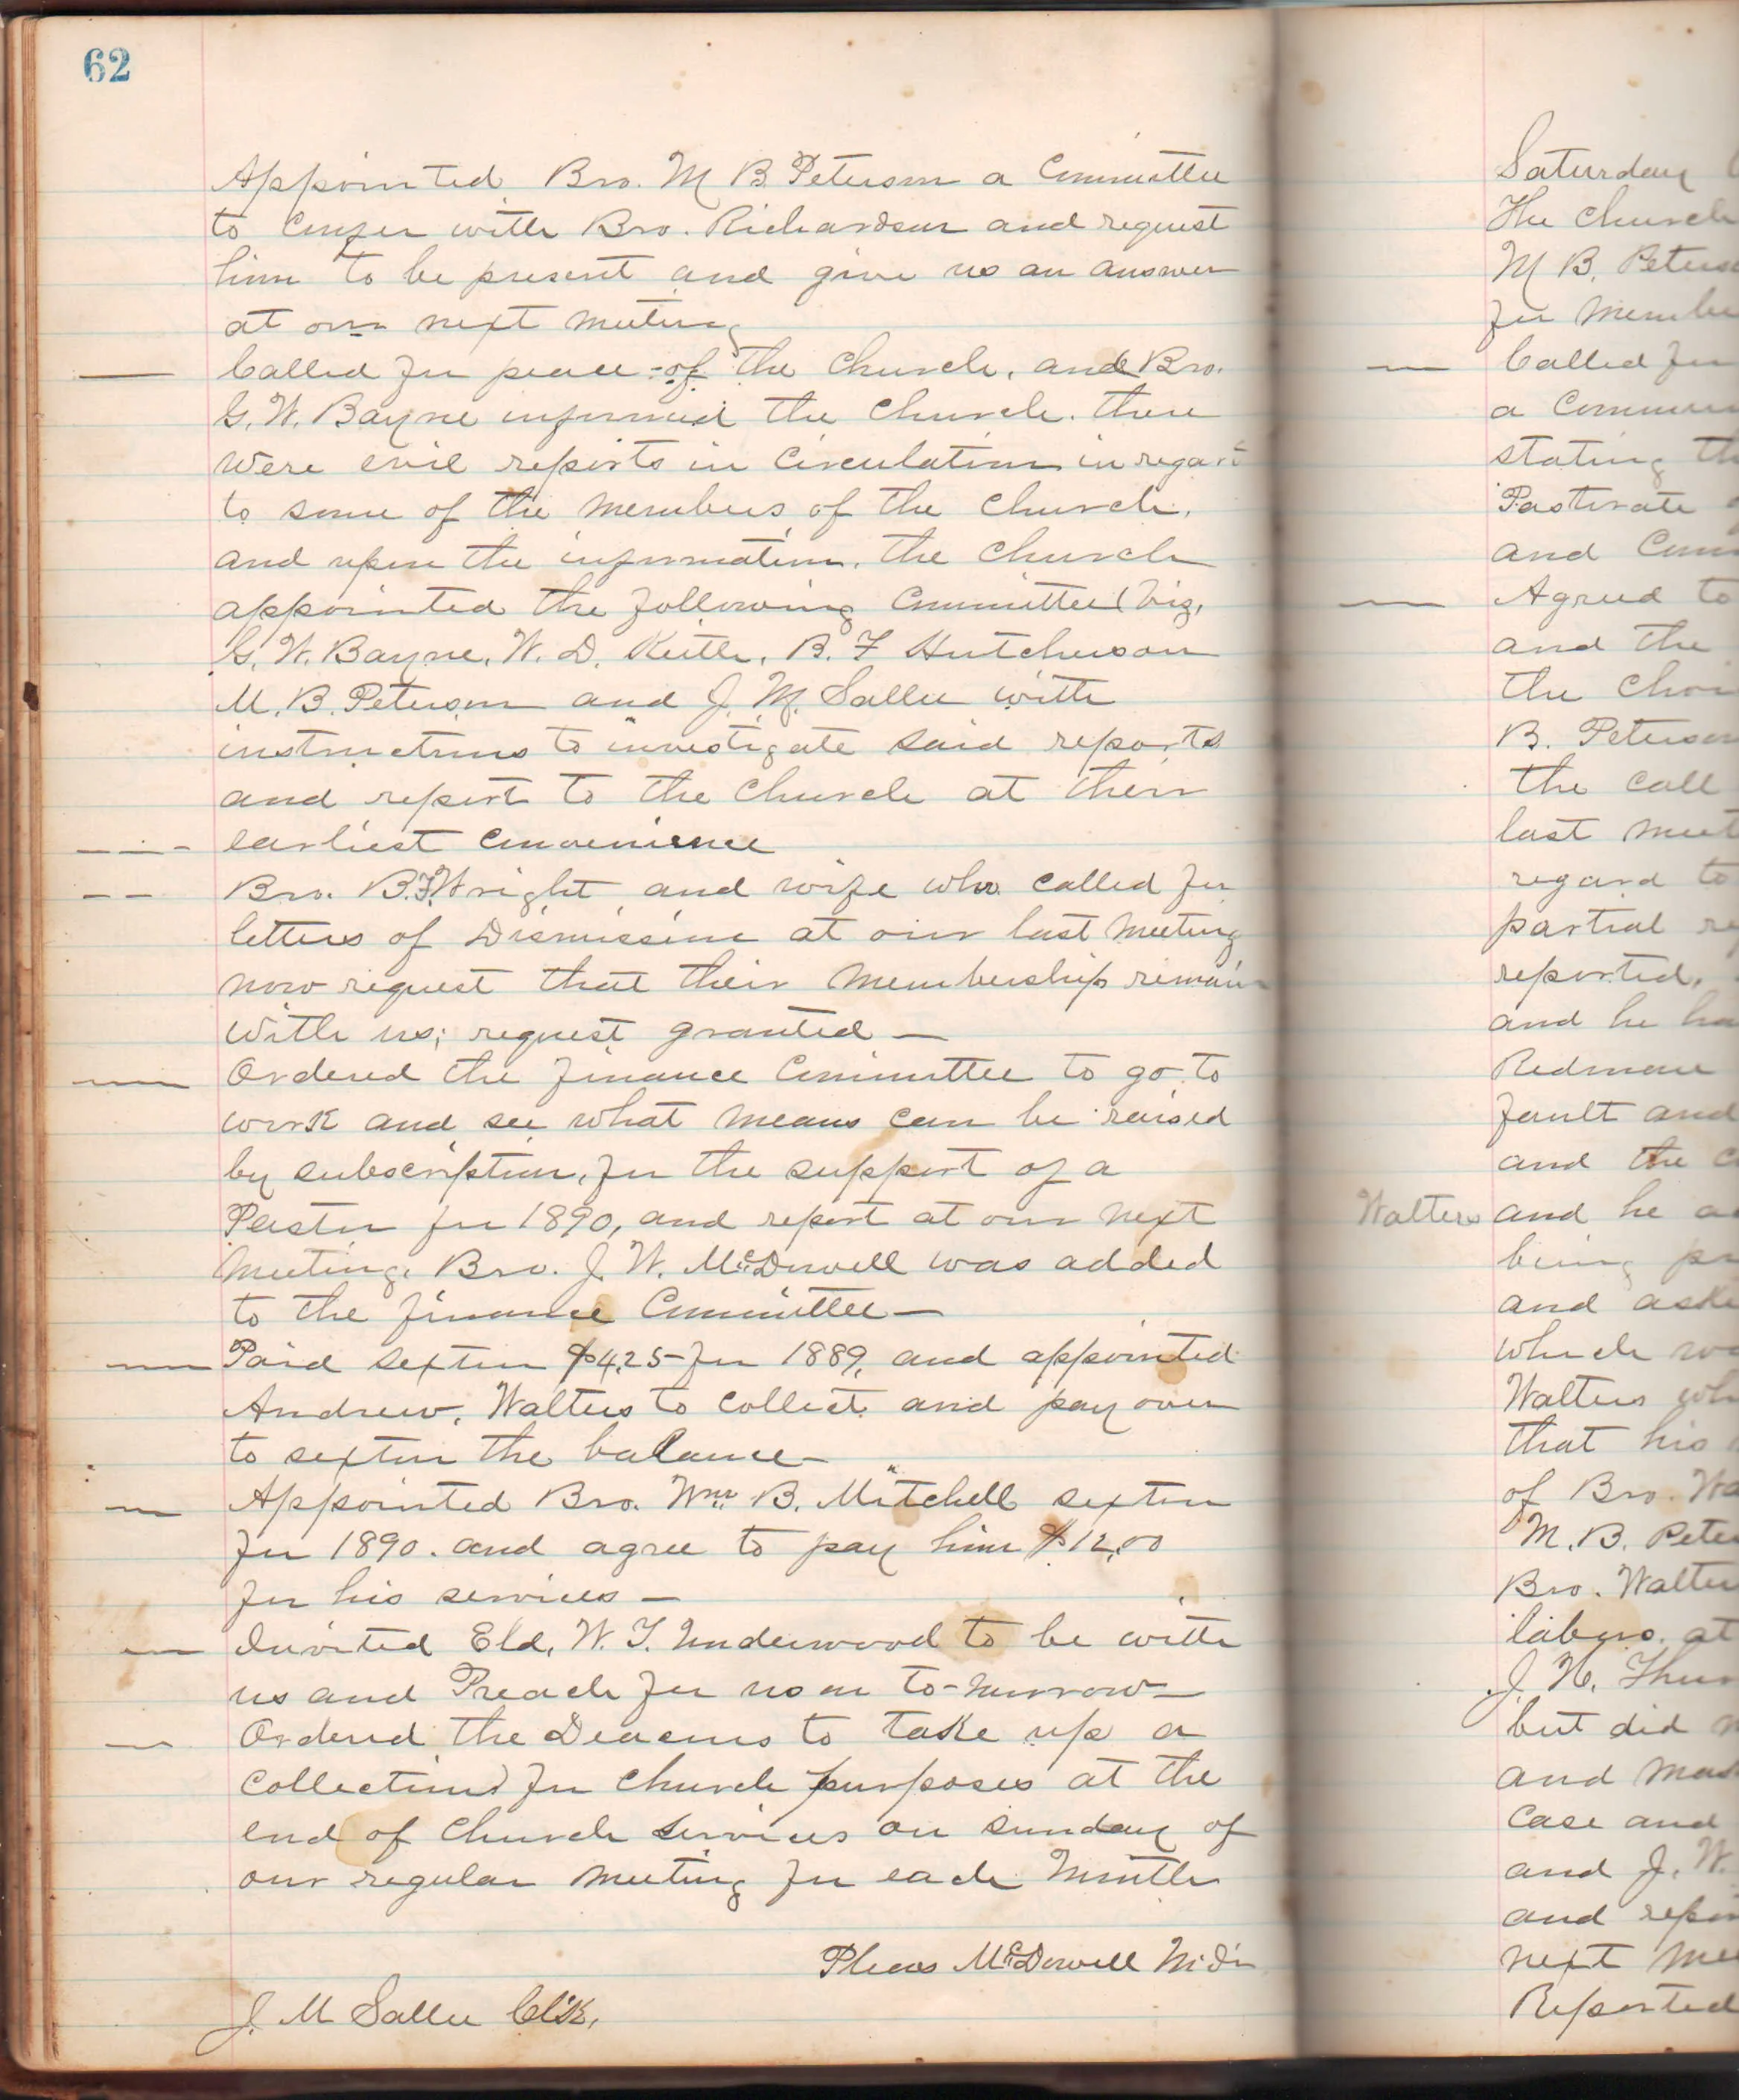 62
Appointed Bro. M B. Peterson a Committee
to Confer with Bro. Richardson and request
him to be present and give us an answer
at our next meeting
Called for peace of the Church, and Bro.
G. W. Bayne informed the Church there
were evil reports in Circulation in regard
to some of the members of the Church,
and upon the information, the Church
appointed the following Committee (Viz,
G. W. Bayne, W. D. Keith, B. F Hutcherson
M. B. Peterson and J. M. Sallee with
instructions to investigate said reports
and report to the Church at their
earliest Convenience
Bro. B. F. Wright and wife who called for
letters of Dismission at our last meeting
now request that their membership remain
with us; request granted —
Ordered the finance Committee to go to
work and see what means can be raised
by subscription, for the support of a
Pastor for 1890, and report at our next
Meeting. Bro. J. W. McDowell was added
to the finance Committee —
Paid sexton $4.25 for 1889, and appointed
Andrew Walters to collect and pay over
to sexton the balance —
Appointed Bro. Wm B. Mitchell sexton
for 1890. and agree to pay him $12.00
for his services —
Invited Eld. W. T. Underwood to be with
us and Preach for us on to-morrow —
Ordered the Deacons to take up a
Collection for Church purposes at the
end of Church services on Sunday of
our regular meeting for each Month
Pleas McDowell Mod
J. M Sallee Cl'k.
Saturday
The Church
M B. Peters
for membe
Called for
a Commun
stating th
Pastorate
and Com
Agreed to
and the
the Choi
B. Peterson
the call
last meet
regard to
partial re
reported,
and he ha
Redmon
fault and
and the c
Walters
and he a
being pr
and aske
which wa
Walters wh
that his
of Bro. Wa
M. B. Pete
Bro. Walter
labors. at
J. H. Thur
but did n
and mad
Case and
and J. W.
and repor
next mee
Reported